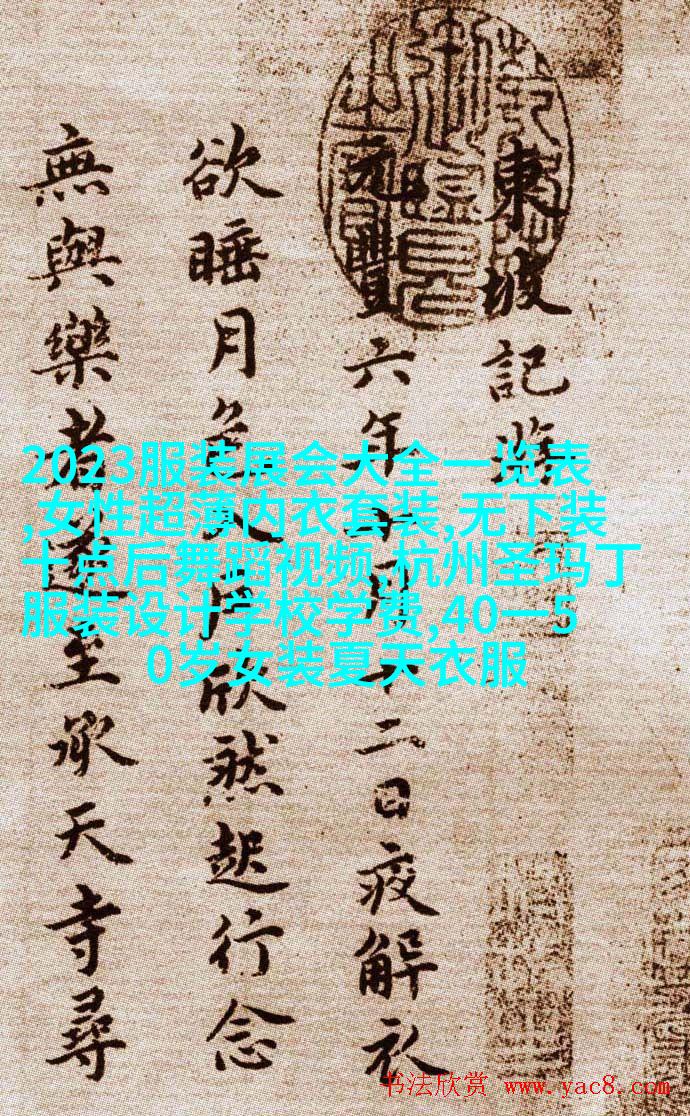 東坡記遊
元豐六年十月十二日疲解衣
欲睡月色入户欣然起行念
無與樂者遂至承天寺尋
2023服装展会大全一览表
,女性超薄内衣套装,无下装
十点后舞蹈视频,杭州圣玛丁
服装设计学校学费,40一5
0岁女装夏天衣服
书法欣赏 www.yac8.com